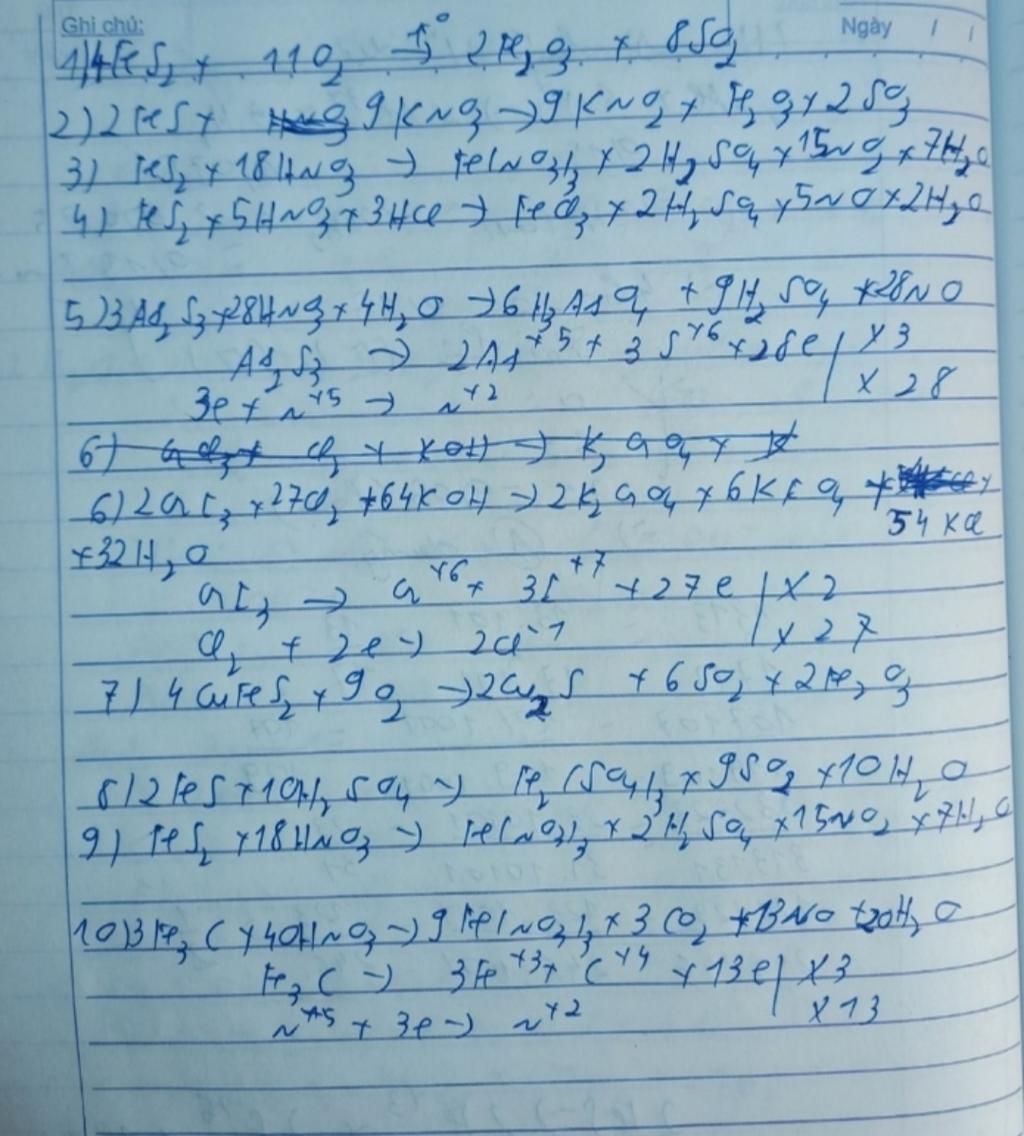 Ghi chú: Ngày / /
1) 4FeS₂ + 11O₂ →t° 2Fe₂O₃ + 8SO₂
2) 2FeS + 9KNO₃ → 9KNO₂ + Fe₂O₃ + 2SO₃
3) FeS₂ + 18HNO₃ → Fe(NO₃)₃ + 2H₂SO₄ + 15NO₂ + 7H₂O
4) FeS₂ + 5HNO₃ + 3HCl → FeCl₃ + 2H₂SO₄ + 5NO + 2H₂O
5) 3As₂S₃ + 28HNO₃ + 4H₂O → 6H₃AsO₄ + 9H₂SO₄ + 28NO
As₂S₃ → 2As⁺⁵ + 3S⁺⁶ + 28e | x3
3e + N⁺⁵ → N⁺² | x 28
6) CrCl₃ + Cl₂ + KOH → K₂CrO₄ + K
6) 2CrI₃ + 27Cl₂ + 64KOH → 2K₂CrO₄ + 6KIO₄ + 54KCl
+ 32H₂O
CrI₃ → Cr⁺⁶ + 3I⁺⁷ + 27e | x 2
Cl₂ + 2e → 2Cl⁻¹ | x 27
7) 4CuFeS₂ + 9O₂ → 2Cu₂S + 6SO₂ + 2Fe₂O₃
8) 2FeS + 10H₂SO₄ → Fe₂(SO₄)₃ + 9SO₂ + 10H₂O
9) FeS₂ + 18HNO₃ → Fe(NO₃)₃ + 2H₂SO₄ + 15NO₂ + 7H₂O
10) 3Fe₃C + 40HNO₃ → 9Fe(NO₃)₃ + 3CO₂ + 13NO + 20H₂O
Fe₃C → 3Fe⁺³ + C⁺⁴ + 13e | x3
N⁺⁵ + 3e → N⁺² | x 13